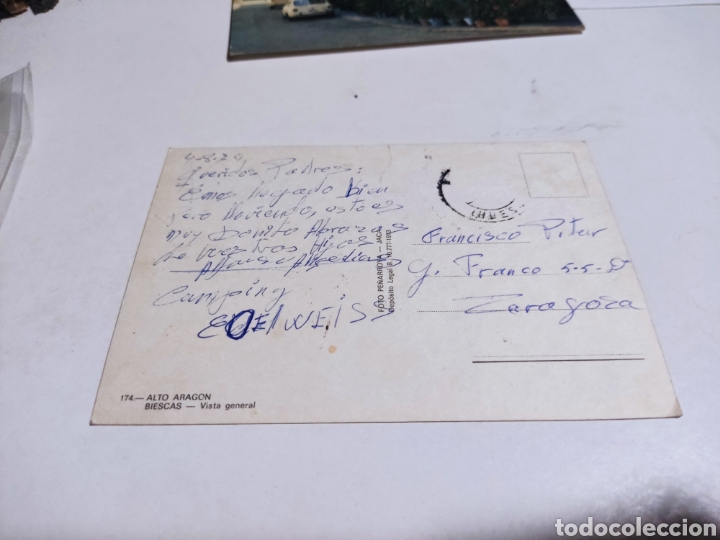 4-8-74
Queridos Padres:
Emos llegado bien
pero lloviendo, esto es
muy Bonito Abrazos
de vuestros Hijos
Camping
EDELWEISS
174.— ALTO ARAGON
BIESCAS — Vista general
FOTO PEÑARROYA — JACA
Depósito Legal B.
Francisco Pitar
G. Franco 5-5-D
Zaragoza
todocoleccion.net